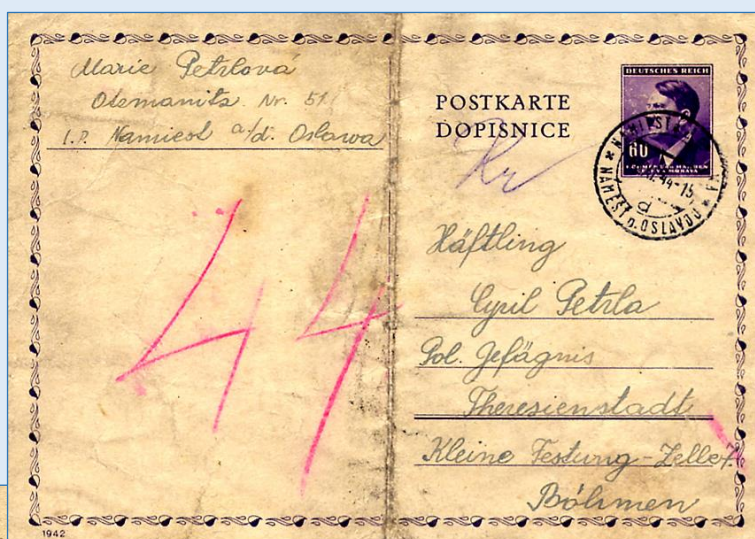 Marie Petrlová
Otemanitz Nr. 51
i.P. Namiest a/d. Oslawa
POSTKARTE
DOPISNICE
Kr
DEUTSCHES REICH
60
BÖHMEN UND MÄHREN
ČECHY A MORAVA
NÁMĚŠŤ n. OSLAVOU
44
Häftling
Cyril Petrla
Pol. Gefägnis
Theresienstadt
Kleine Festung-Zelle
Böhmen
1942